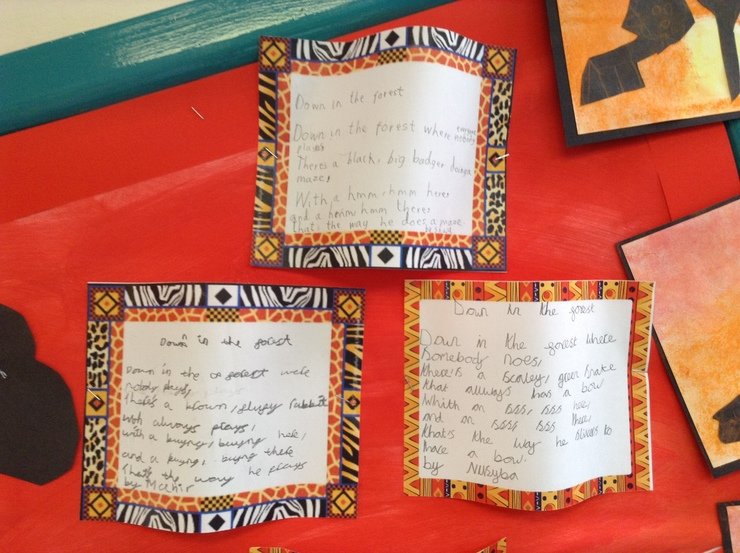 Down in the forest
Down in the forest where nobody
plays
There's a black, big badger doing a
maze,
With a hmm, hmm here
and a hmm, hmm there
that the way he does a maze
Down in the forest
Down in the forest were
nobody plays,
There's a brown, slupy rabbit
with always plays,
with a buyng, buyng here,
and a buyng, buyng there
That's the way he plays
by Mahir
Down in the forest
Down in the forest where
Somebody noes,
there's a scaley, green snake
that allways has a bow
Whith an ssss, ssss here,
and an ssss ssss there,
that's the way he slivers to
have a bow.
by Nusyba